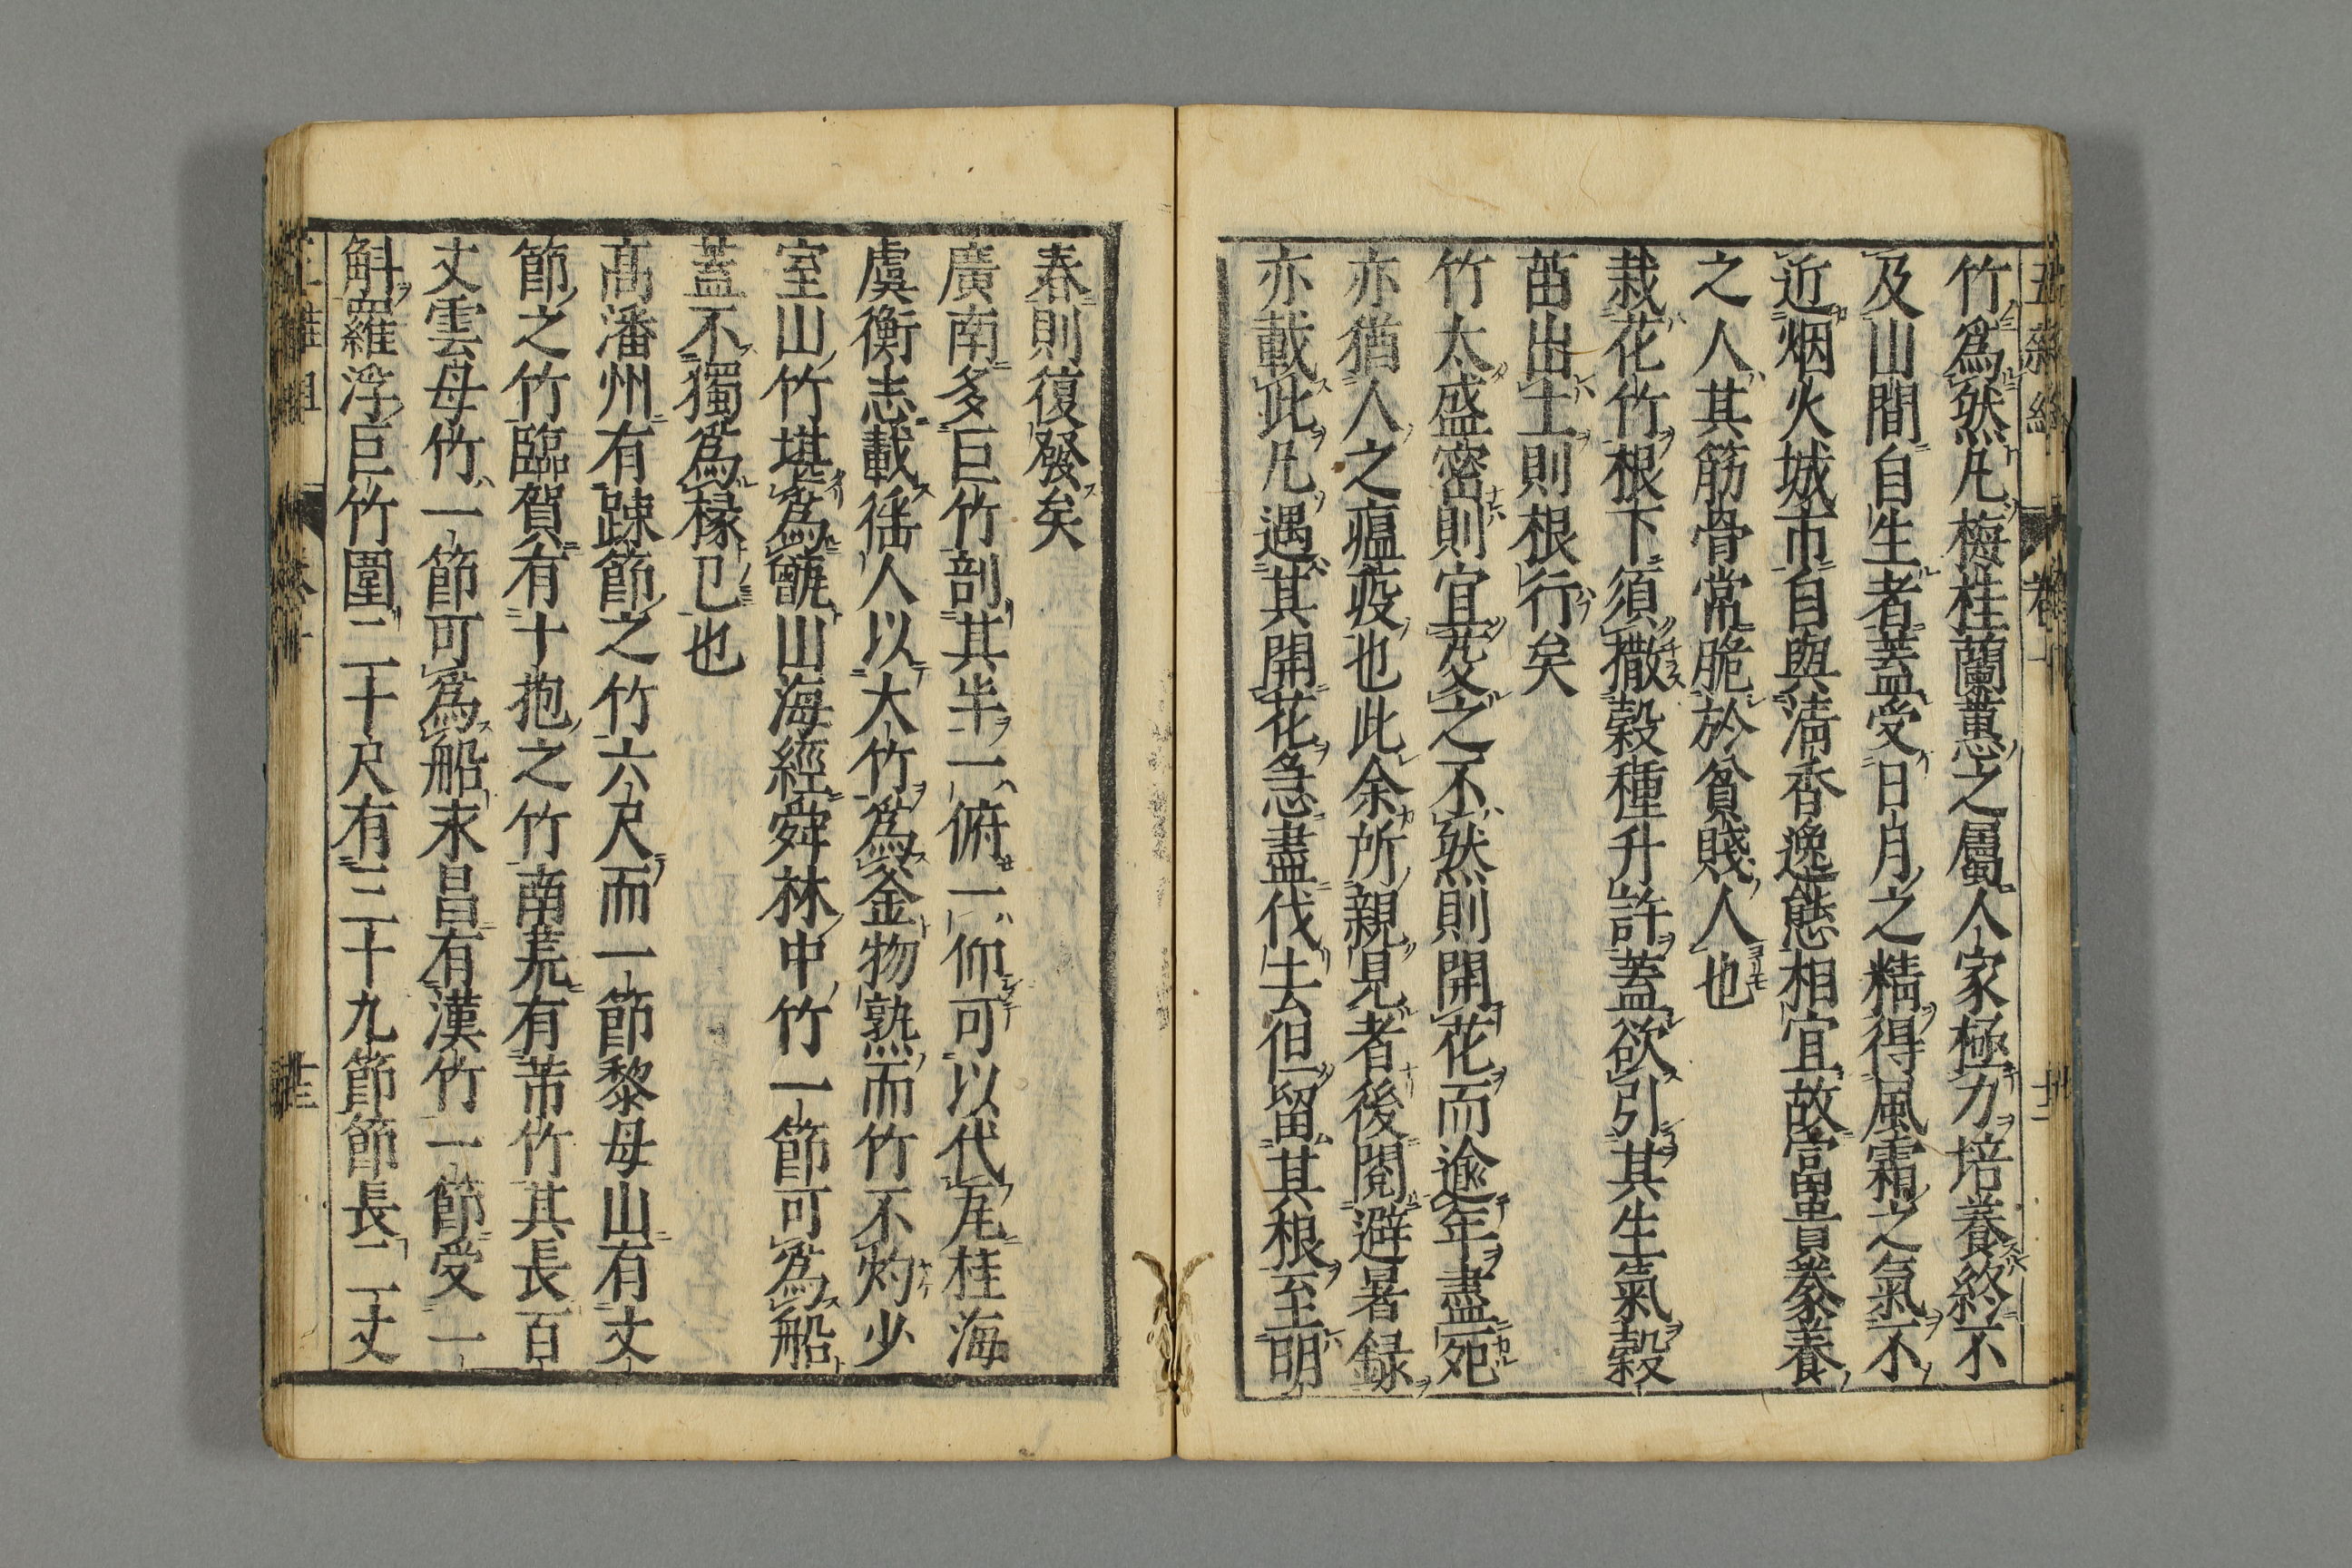 竹爲然凡梅桂蘭蕙之屬人家極力培養終不
及山間自生者蓋受日月之精得風霜之氣不
近烟火城市自與淸香逸態相宜故富貴豢養
之人其筋骨常脆於貧賤人也
栽花竹根下須撒穀種升許蓋欲引其生氣穀
苗出土則根行矣
竹太盛密則宜芟之不然則開花而逾年盡死
亦猶人之瘟疫也此余所親見者後閱避暑録
亦載此凡遇其開花急盡伐去但留其根至明
春則復發矣
廣南多巨竹剖其半一俯一仰可以代瓦桂海
虞衡志載徭人以大竹爲釜物熟而竹不灼少
室山竹堪爲甑山海經舜林中竹一節可爲船
蓋不獨爲椽已也
高潘州有踈節之竹六尺而一節黎母山有丈
節之竹臨賀有十抱之竹南荒有芾竹其長百
丈雲母竹一節可爲船永昌有漢竹一節受一
斛羅浮巨竹圍二十尺有三十九節節長二丈